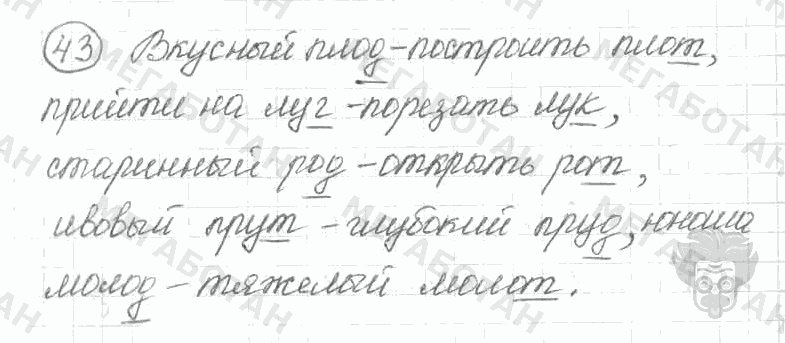 43 Вкусный плод - построить плот,
прийти на луг - порезать лук,
старинный род - открыть рот,
ивовый прут - глубокий пруд, юноша
молод - тяжелый молот.
МЕГАБОТАН